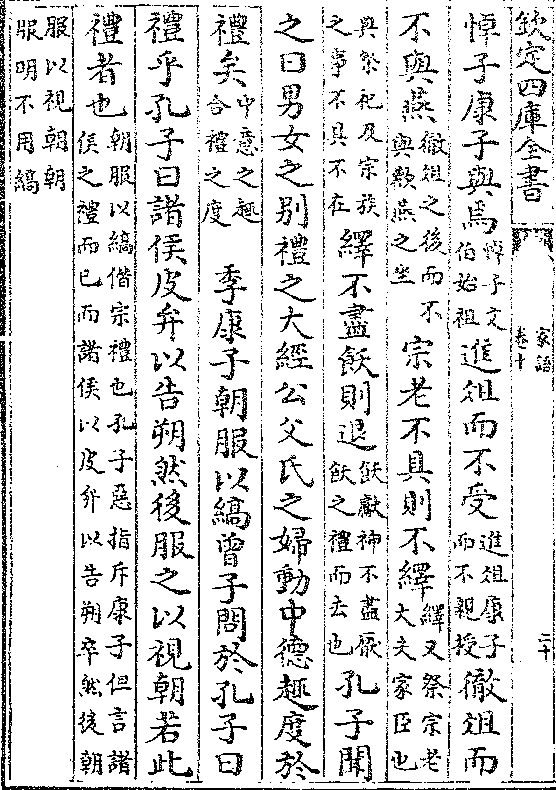 欽定四庫全書 家語卷十 二十
悼子康子與焉悼子文伯始祖進俎而不受進俎康子而不親授徹俎而
不與燕徹俎之後而不與歡燕之坐宗老不具則不繹繹又祭宗老大夫家臣也
與祭祀及宗族之事不具不在繹不盡飫則退飫獻神不盡厭飫之禮而去也孔子聞
之曰男女之别禮之大經公父氏之婦動中德趣度於
禮矣中意之趣合禮之度 季康子朝服以縞曾子問於孔子曰
禮乎孔子曰諸侯皮弁以告朔然後服之以視朝若此
禮者也朝服以縞僭宗禮也孔子惡指斥康子但言諸侯之禮而已而諸侯以皮弁以告朔卒然後朝
服以視朝朝服明不用縞